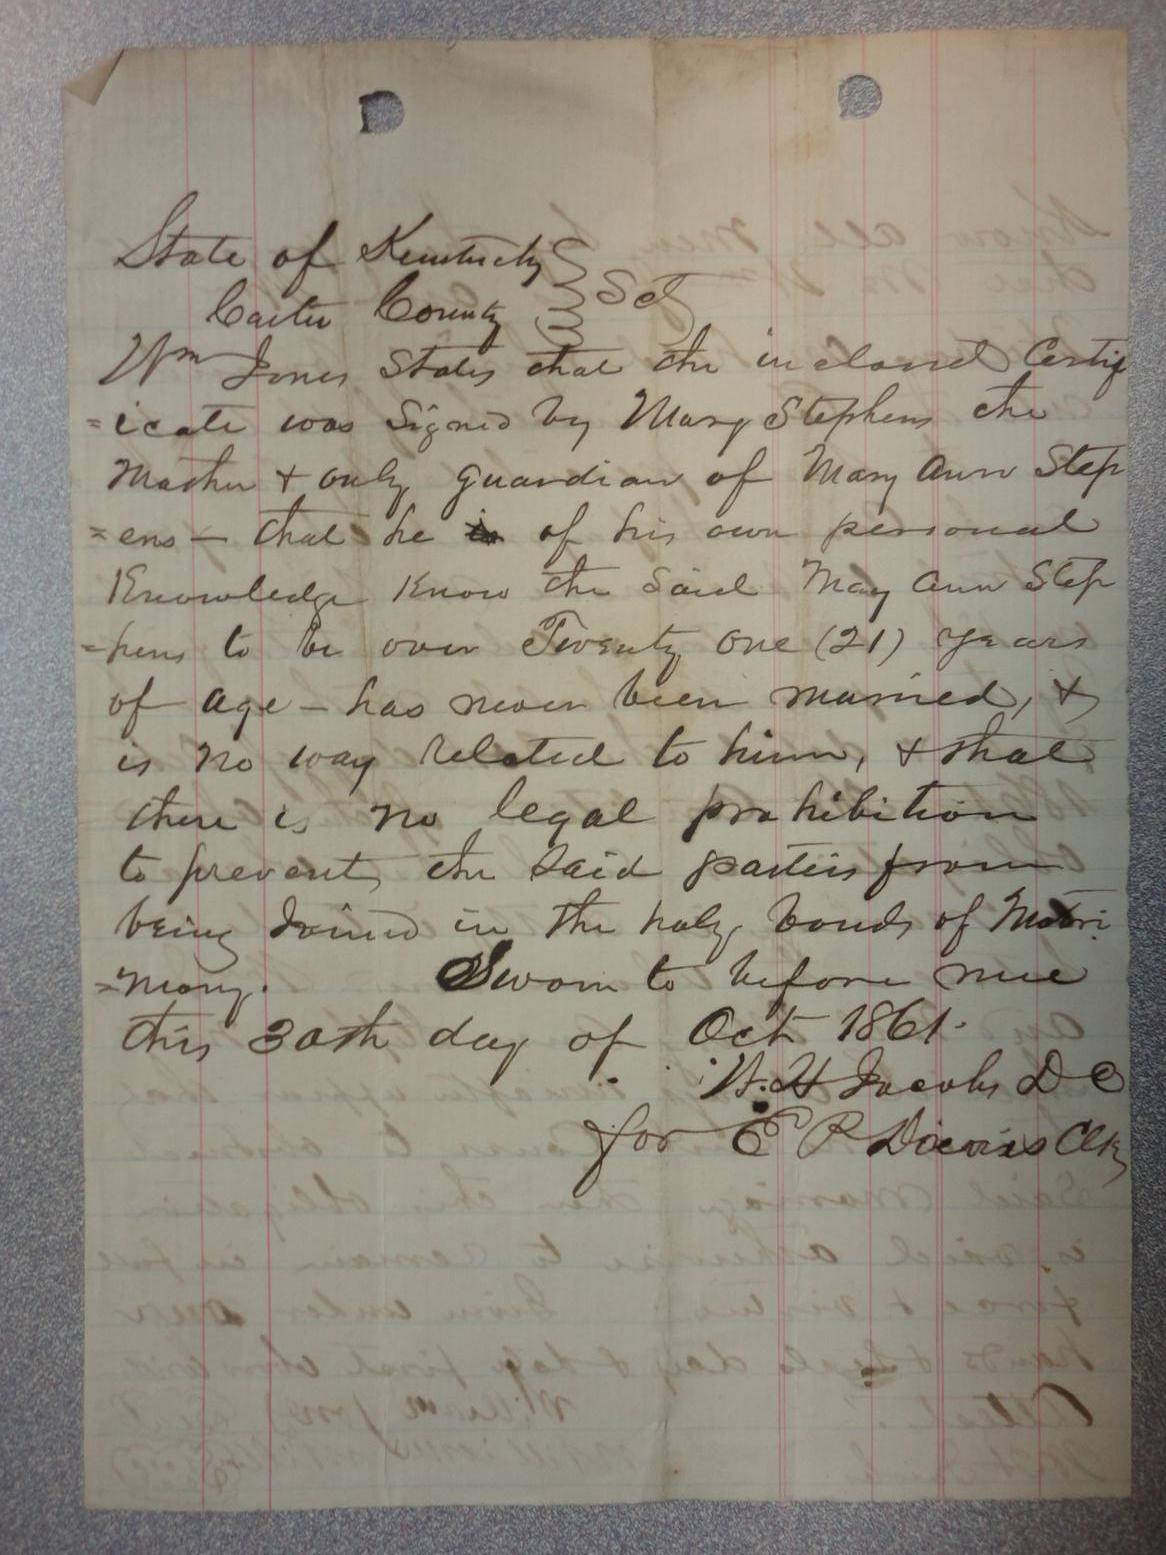 State of Kentucky
Carter County } Sct
Wm Jones States that the inclosed Certif
=icate was Signed by Mary Stephens the
Mother & only guardian of Mary Ann Step
=ens - that he is of his own personal
Knowledge Know the Said Mary Ann Step
=hens to be over Twenty one (21) years
of age - has never been married, &
is no way related to him, & that
there is no legal prohibition
to prevent the Said parties from
being Joined in the holy bonds of Matri
=mony. Sworn to before me
this 30th day of Oct 1861.
W. H Jacobs D C
for E P Clk